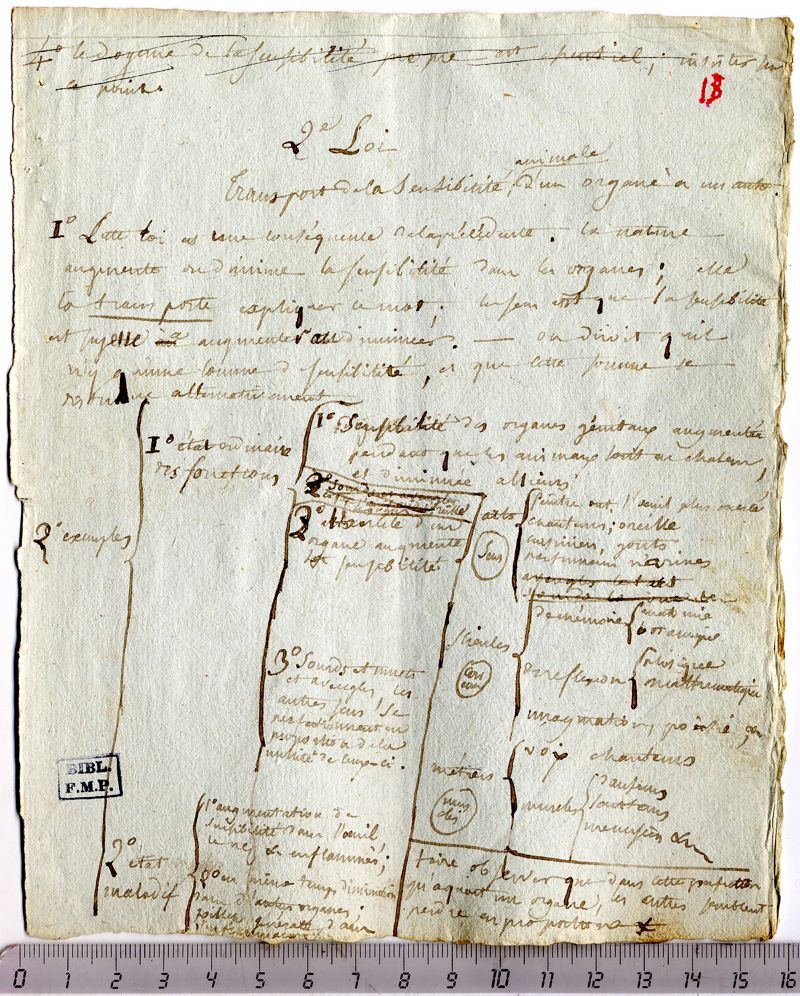 4° le dogme de la sensibilité propre est essentiel, insister sur
ce point.
18
2e Loi
Transport de la Sensibilité animale d'un organe à un autre.
1° Cette loi est une conséquence de la précédente. la nature
augmente ou diminue la sensibilité dans les organes; elle
la transporte expliquer ce mot; le sens est que la sensibilité
est sujette à augmenter ou diminuer. — on diroit qu'il
n'y a qu'une somme de sensibilité, et que cette somme se
distribue alternativement
2° exemples
1° état ordinaire
des fonctions
1° Sensibilité des organes génitaux augmentée
pendant que les animaux sont en chaleur,
et diminuée ailleurs
2° Sourds et aveugles
2° habitude d'un
organe augmente
sa sensibilité.
arts
Sens
Peintre ont l'oeuil plus exercé
chanteurs; oreille
cuisiniers, goûts
parfumeurs narines
aveugles
Sciences
cerveau
de mémoire
anatomie
botanique
de reflexion
phisique
mathématique
imagination, poésie, &c
métiers
muscles
voix chanteurs
muscles
danseurs
Sauteurs
menuisiers &c
3° Sourds et muets
et aveugles, les
autres sens se
perfectionnent en
proportion de la
nullité de ceux-ci.
2° état
maladif
1° augmentation de
sensibilité dans l'oeuil,
le nez &c enflammés;
2° en même temps diminution
dans d'autres organes;
faire observer que dans cette perfection
qu'aquiert un organe, les autres semblent
perdre en proportion
BIBL.
F.M.P.
0 1 2 3 4 5 6 7 8 9 10 11 12 13 14 15 16